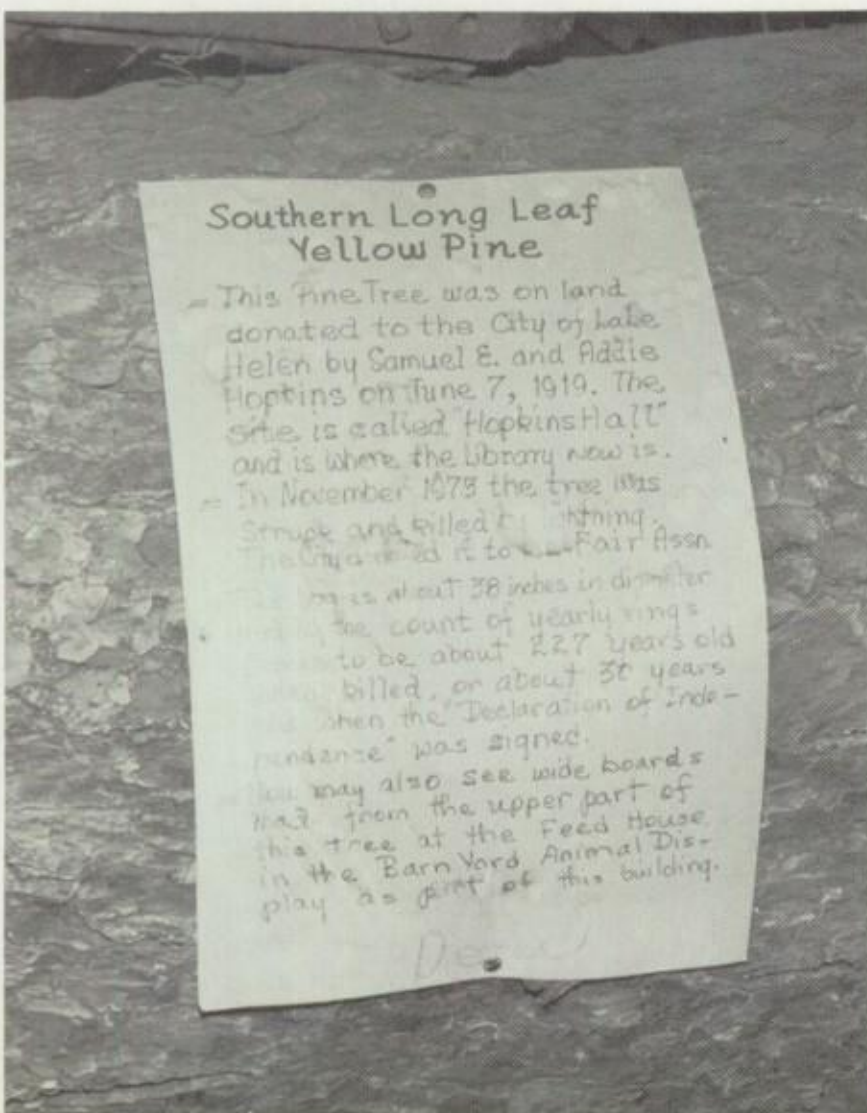 Southern Long Leaf
Yellow Pine
This Pine Tree was on land
donated to the City of Lake
Helen by Samuel E. and Addie
Hopkins on June 7, 1919. The
site is called "Hopkins Hall"
and is where the Library now is.
In November the tree was
Struck and killed lightning.
The City it to Fair Assn
is about 38 inches in diameter
the count of yearly rings
to be about 227 years old
killed, or about years
when the "Declaration of Inde-
pendence" was signed.
You may also see wide boards
from the upper part of
this tree at the Feed House
in the Barn Yard Animal Dis-
play as part of this building.